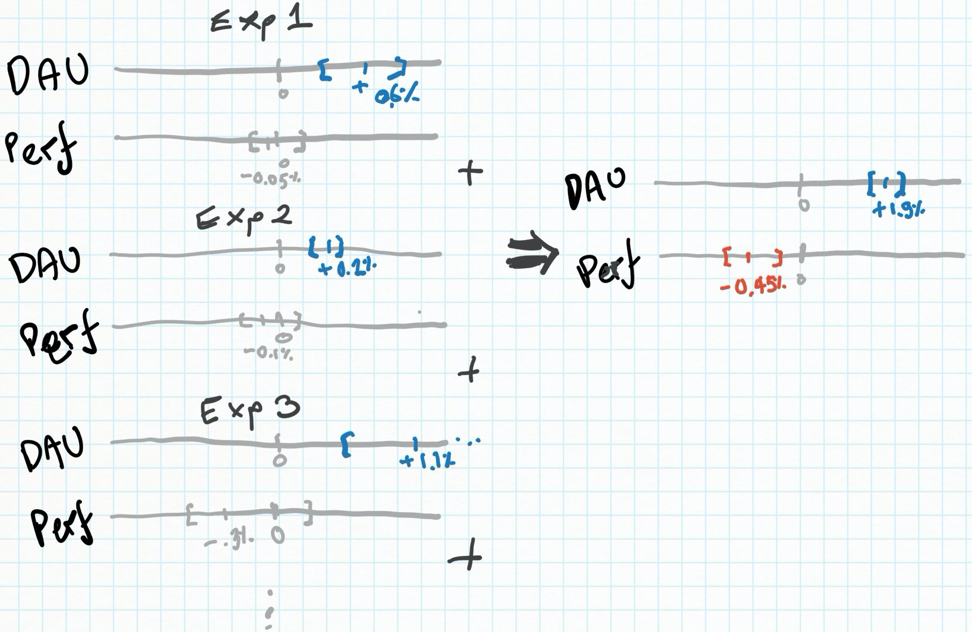 Exp 1
DAU
0
+ 0.6%
Perf
0
-0.05%
+
Exp 2
DAU
0
+0.2%
Perf
0
-0.1%
+
Exp 3
DAU
0
+1.1%
...
Perf
-.3%
0
+
⇒
DAU
0
+1.9%
Perf
0
-0.45%